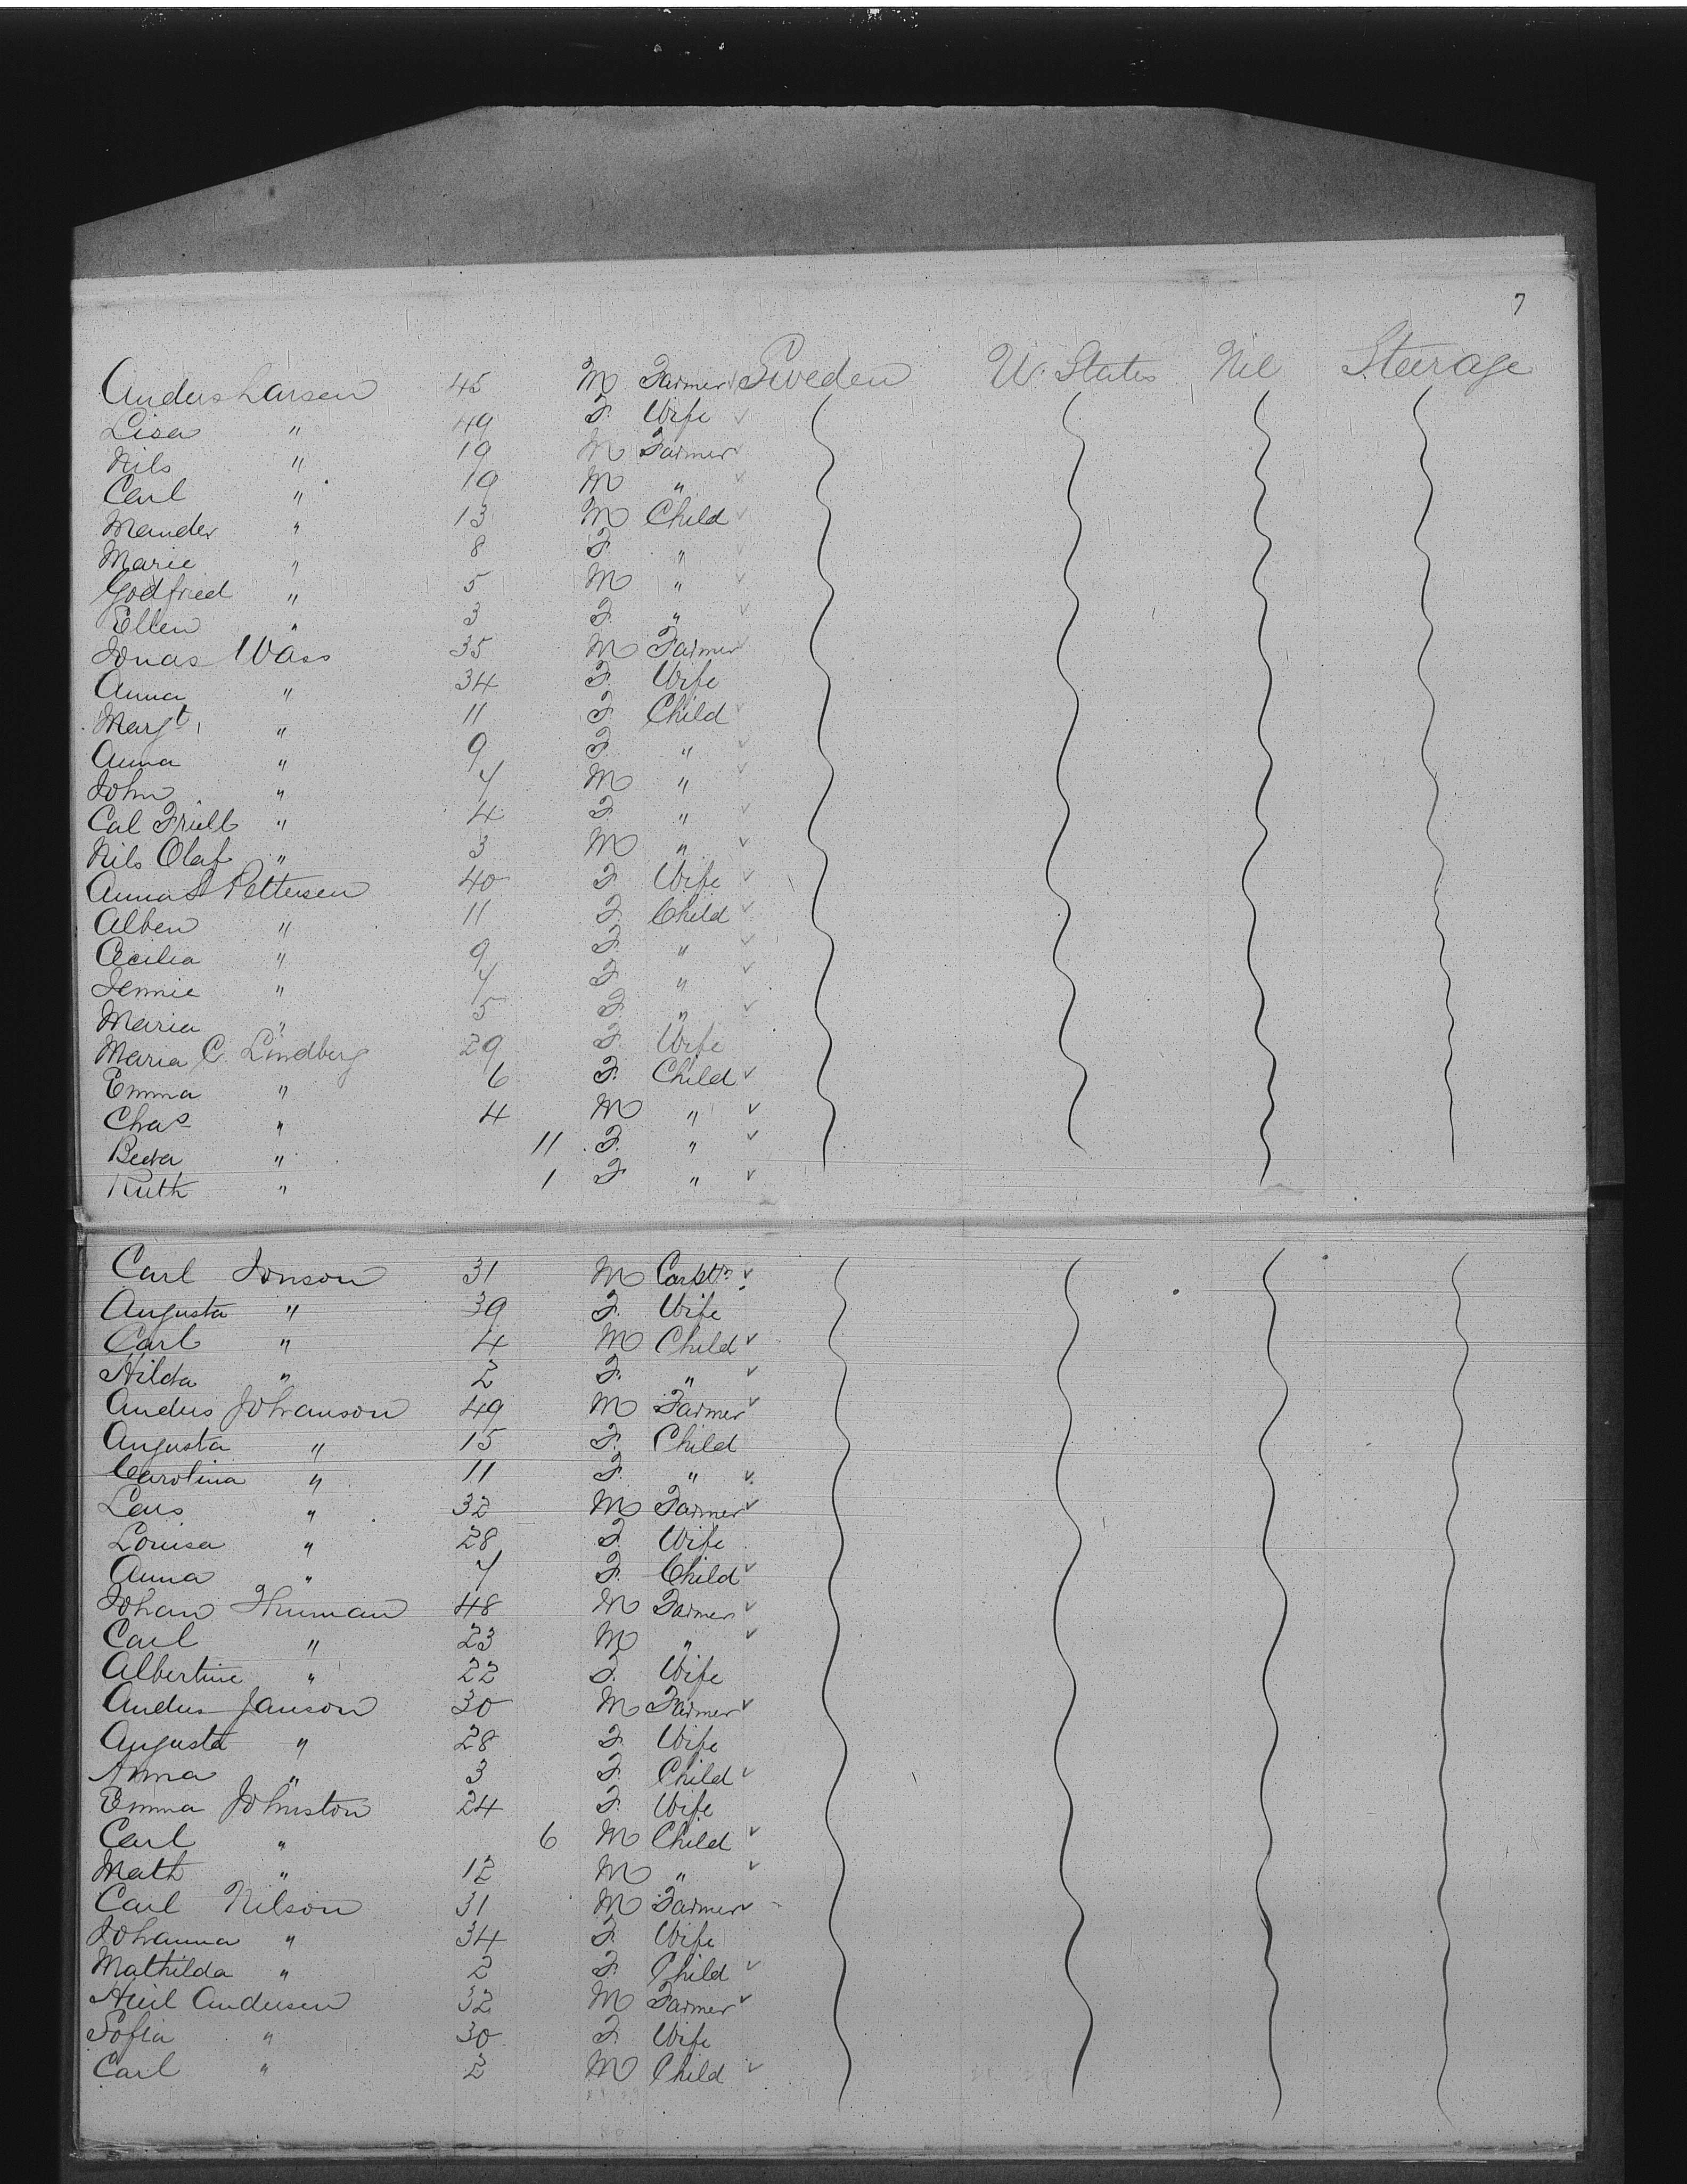 7
Anders Larsen 45 M Farmer Sweden U. States Nil Steerage
Lisa " 49 F. Wife ✓
Nils " 19 M Farmer ✓
Carl " 19 M " ✓
Mander " 13 M Child ✓
Marie " 8 F. " ✓
Godfried " 5 M " ✓
Ellen " 3 F. " ✓
Jonas Wass 35 M Farmer ✓
Anna " 34 F. Wife
Margt " 11 F. Child ✓
Anna " 9 F. " ✓
John " 7 M " ✓
Cal " 4 F. " ✓
Nils Olaf " 3 M " ✓
Anna S Pettersen 40 F. Wife ✓
Alben " 11 F. Child ✓
Cecilia " 9 F. " ✓
Jennie " 7 F. " ✓
Maria " 5 F. " ✓
Maria C. Lindberg 29 F. Wife
Emma " 6 F. Child ✓
Chas " 4 M " ✓
" 11 F. " ✓
Ruth " 1 F " ✓
Carl Jonson 31 M Carptr ✓
Augusta " 39 F. Wife
Carl " 4 M Child ✓
Hilda " 2 F. " ✓
Anders Johanson 49 M Farmer ✓
Augusta " 15 F. Child
Carolina " 11 F. " ✓
Lars " 32 M Farmer ✓
Louisa " 28 F. Wife
Anna " 7 F. Child ✓
Johan Thuman 48 M Farmer ✓
Carl " 23 M " ✓
Albertine " 22 F. Wife
Anders Janson 30 M Farmer ✓
Augusta " 28 F. Wife
Anna " 3 F. Child ✓
Emma Johnston 24 F. Wife
Carl " 6 M Child ✓
Math " 12 M " ✓
Carl Nilson 31 M Farmer ✓
Johanna " 34 F. Wife
Mathilda " 2 F. Child ✓
Andersen 32 M Farmer ✓
Sofia " 30 F. Wife
Carl " 2 M Child ✓